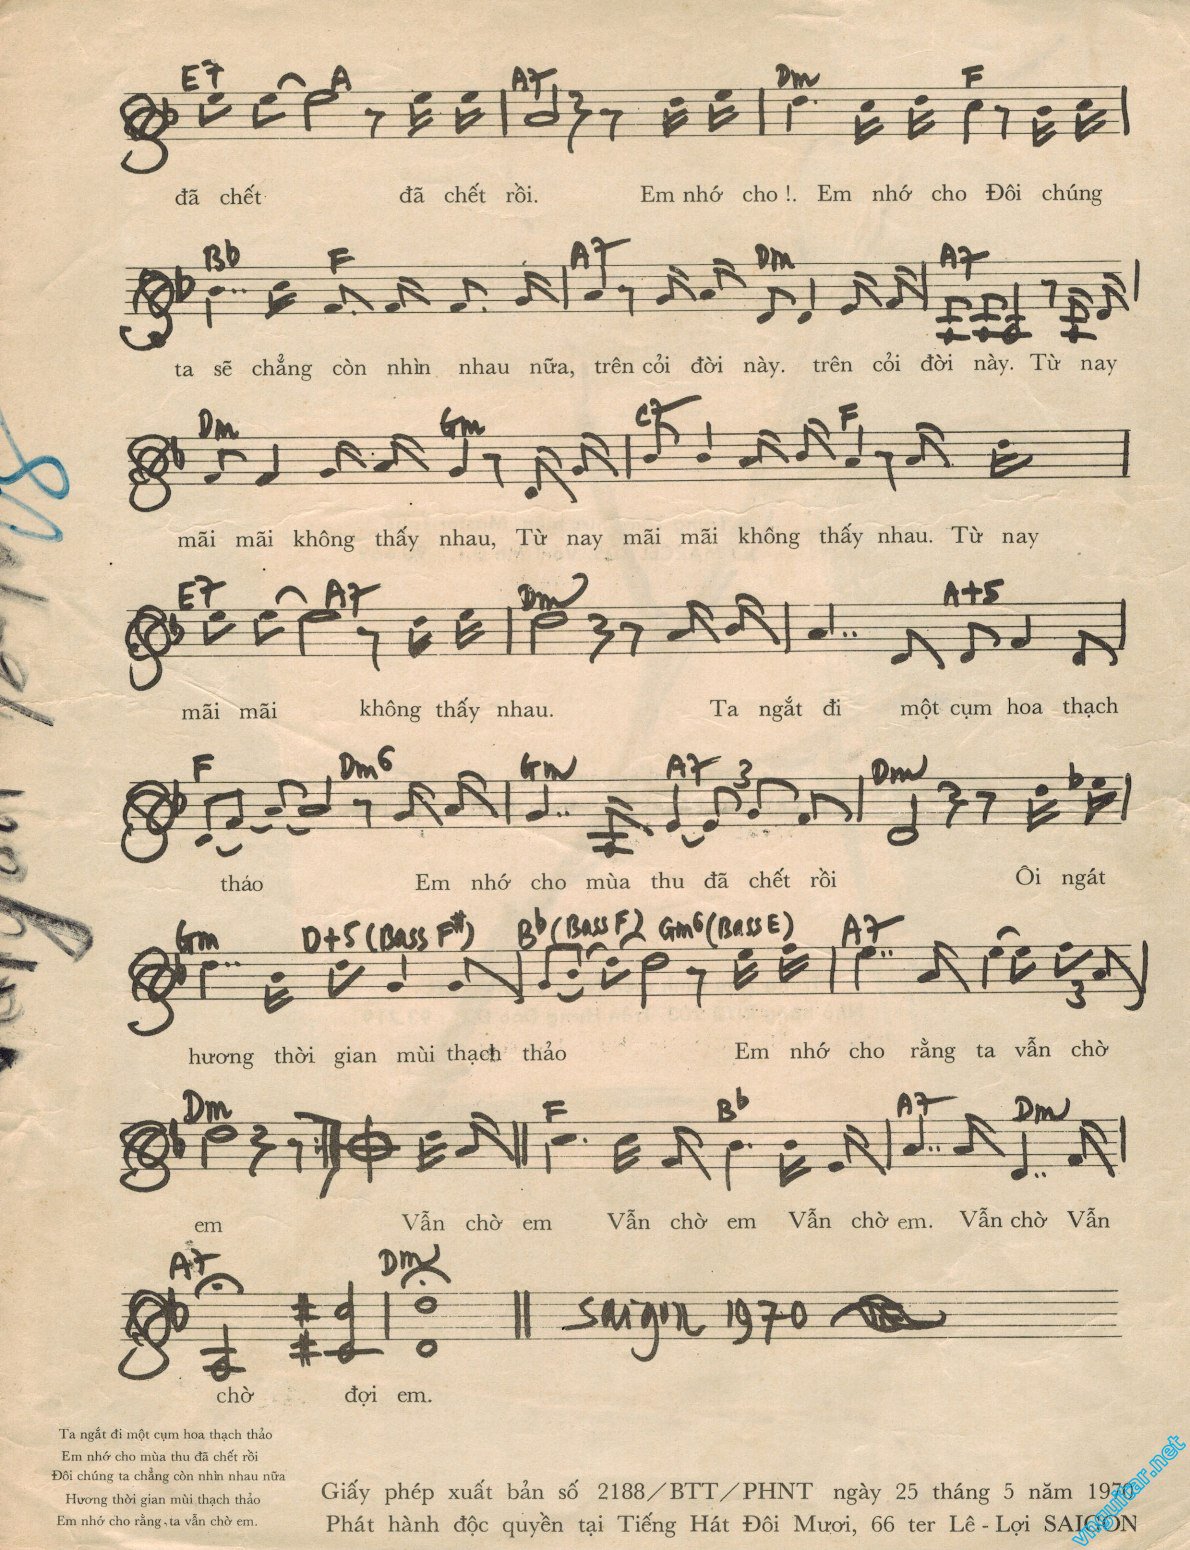 E7 A A7 Dm F
đã chết đã chết rồi. Em nhớ cho !. Em nhớ cho Đôi chúng
Bb F A7 Dm A7
ta sẽ chẳng còn nhìn nhau nữa, trên cỏi đời này. trên cỏi đời này. Từ nay
Dm Gm C7 F
mãi mãi không thấy nhau, Từ nay mãi mãi không thấy nhau. Từ nay
E7 A7 Dm A+5
mãi mãi không thấy nhau. Ta ngắt đi một cụm hoa thạch
F Dm6 Gm A7 3 Dm
thảo Em nhớ cho mùa thu đã chết rồi Ôi ngát
Gm D+5 (Bass F#) Bb (Bass F) Gm6 (Bass E) A7
3
hương thời gian mùi thạch thảo Em nhớ cho rằng ta vẫn chờ
Dm F Bb A7 Dm
em Vẫn chờ em Vẫn chờ em Vẫn chờ em. Vẫn chờ Vẫn
A7 Dm
Saigon 1970
chờ đợi em.
Ta ngắt đi một cụm hoa thạch thảo
Em nhớ cho mùa thu đã chết rồi
Đôi chúng ta chẳng còn nhìn nhau nữa
Hương thời gian mùi thạch thảo
Em nhớ cho rằng, ta vẫn chờ em.
Giấy phép xuất bản số 2188/BTT/PHNT ngày 25 tháng 5 năm 1970
Phát hành độc quyền tại Tiếng Hát Đôi Mươi, 66 ter Lê - Lợi SAIGON
vnguitar.net